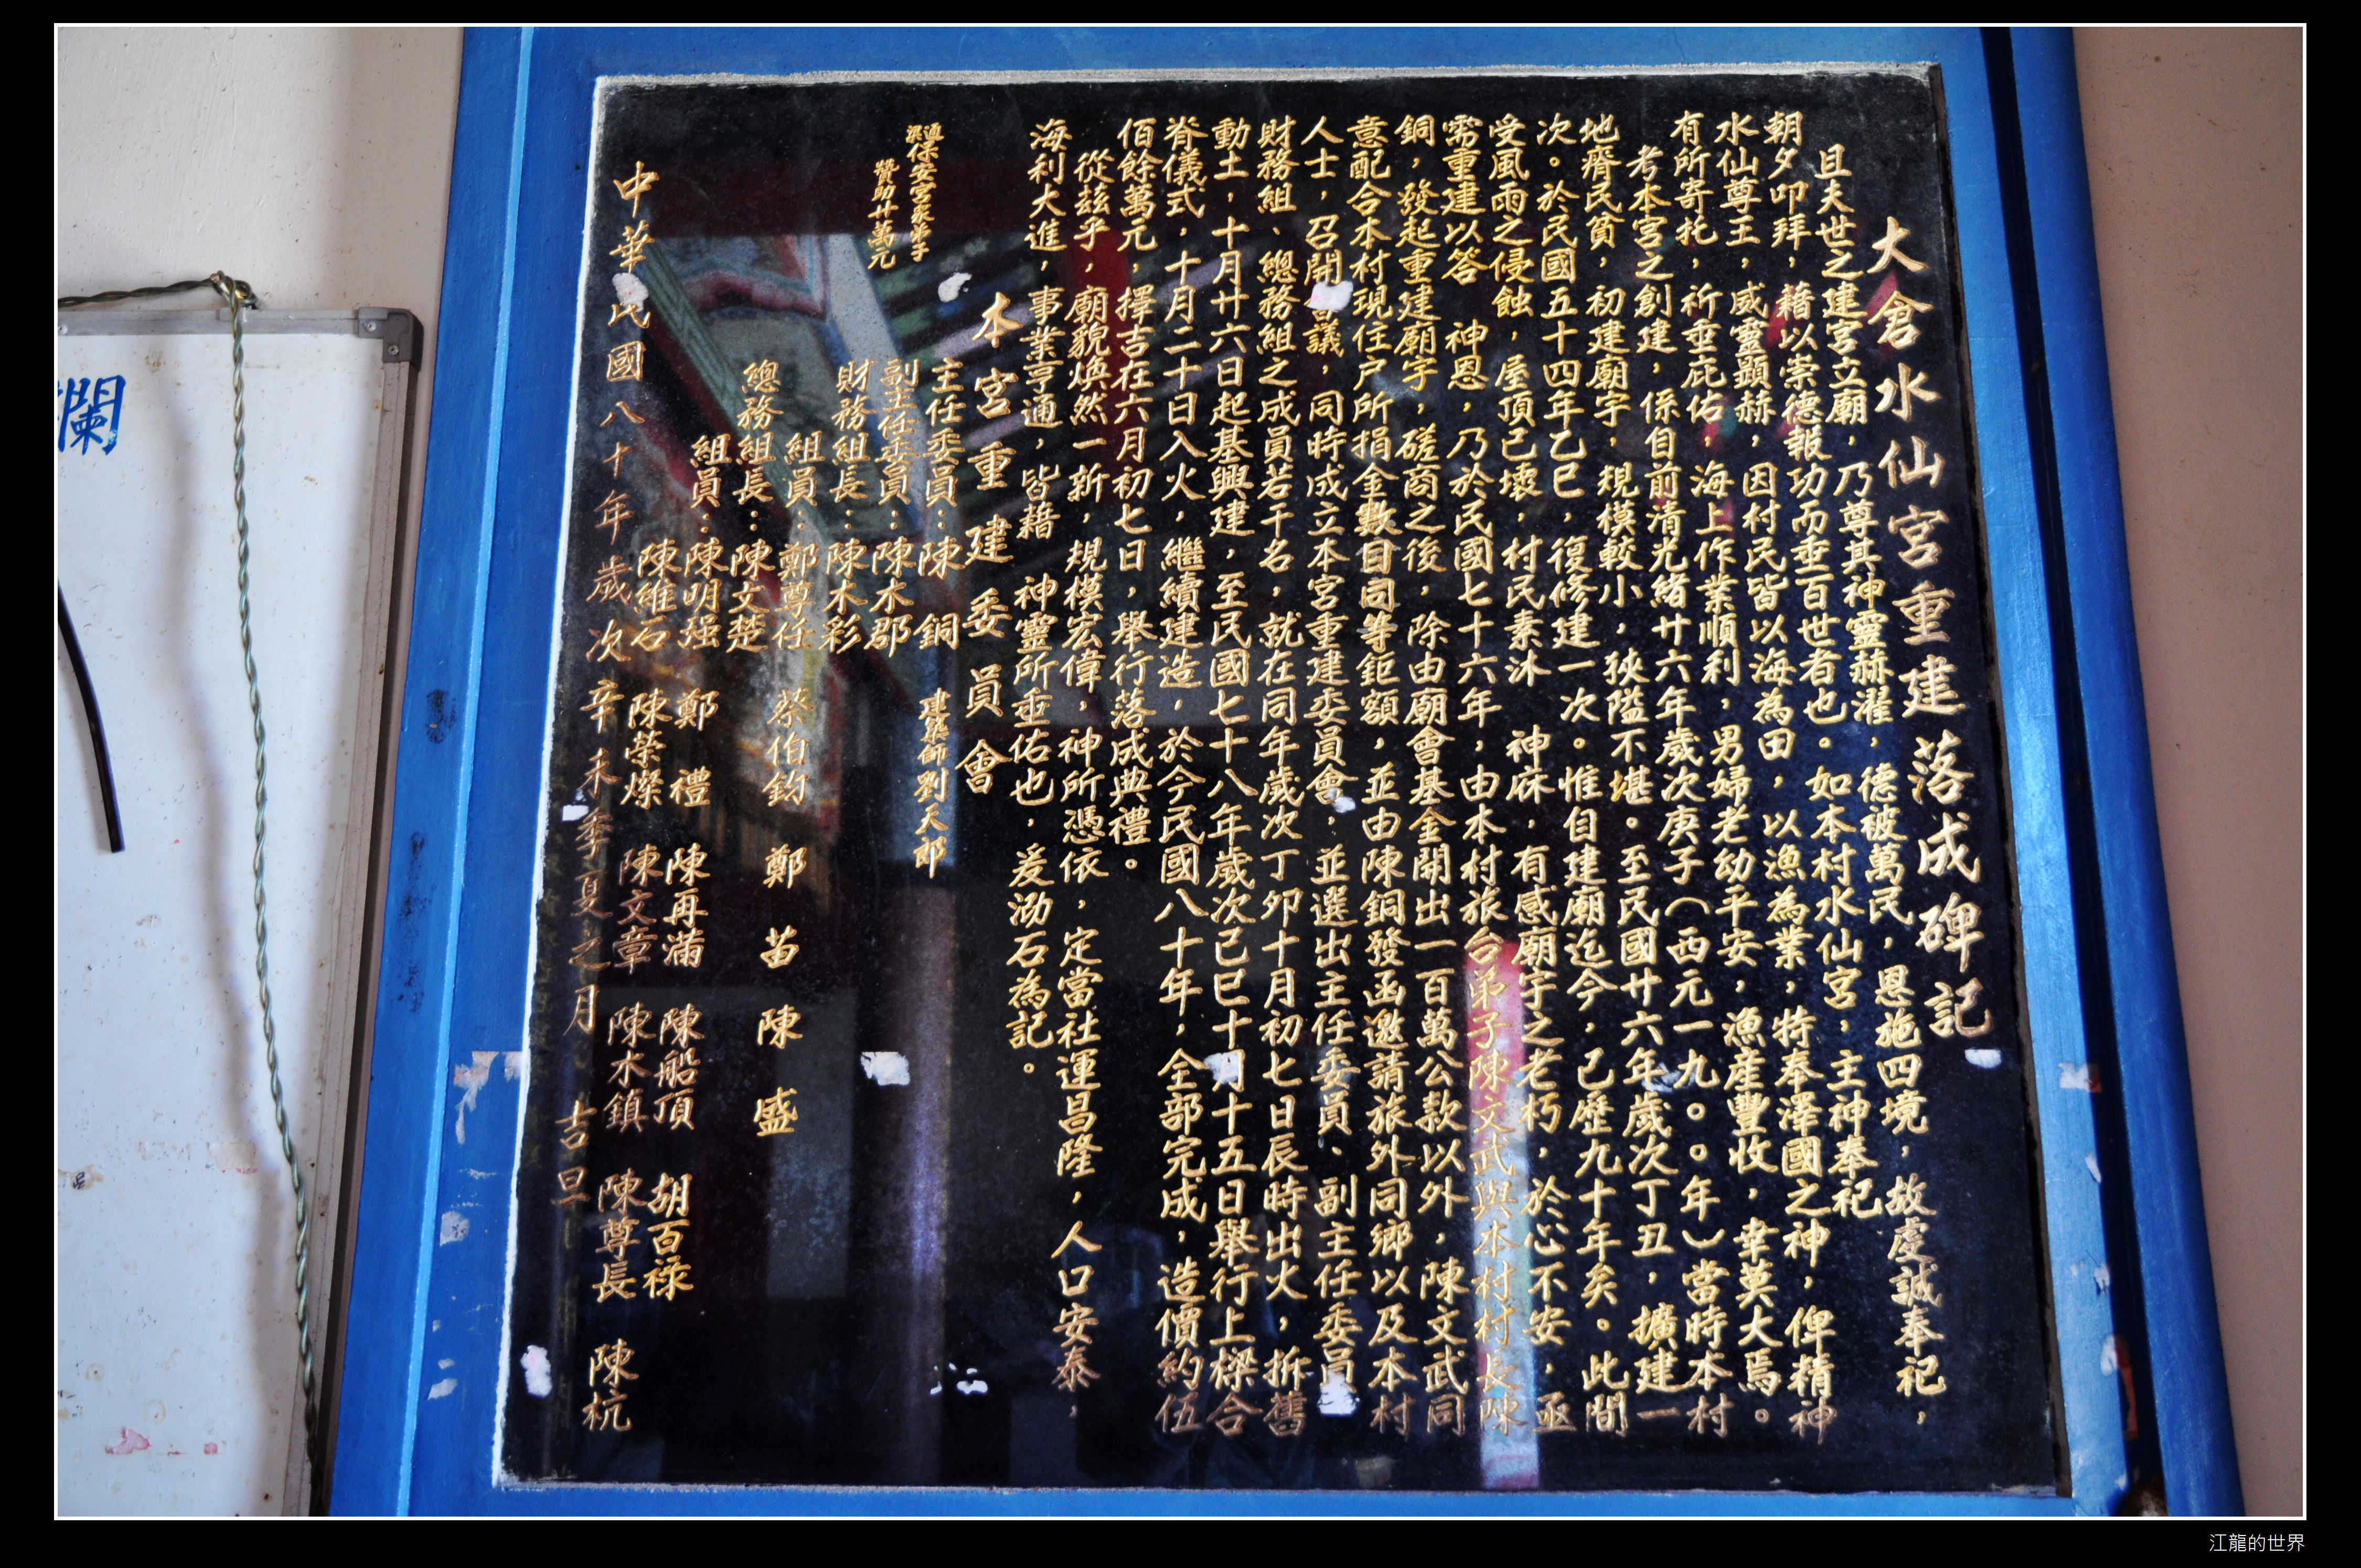 大倉水仙宮重建落成碑記
且夫世之建宮立廟，乃尊其神靈赫濯，德被萬民，恩施四境，故虔誠奉祀，
朝夕叩拜，藉以崇德報功而垂百世者也。如本村水仙宮，主神奉祀
水仙尊王，威靈顯赫，因村民皆以海為田，以漁為業，特奉澤國之神，俾精神
有所寄托，祈垂庇佑，海上作業順利，男婦老幼平安，漁產豐收，幸莫大焉。
考本宮之創建，係自前清光緒廿六年歲次庚子（西元一九○○年）當時本村
地瘠民貧，初建廟宇，規模較小，狹隘不堪。至民國廿六年歲次丁丑，擴建一
次。於民國五十四年乙巳，復修建一次。惟自建廟迄今，己歷九十年矣。此間
受風雨之侵蝕，屋頂已壞，村民素沐　神庥，有感廟宇之老朽，於心不安，亟
需重建以答　神恩，乃於民國七十六年，由本村旅台弟子陳文武與本村村長陳
銅，發起重建廟宇，磋商之後，除由廟會基金開出一百萬公款以外，陳文武同
意配合本村現住戶所捐金數目同等鉅額，並由陳銅發函邀請旅外同鄉以及本村
人士，召開會議，同時成立本宮重建委員會，並選出主任委員、副主任委員
財務組、總務組之成員若干名，就在同年歲次丁卯十月初七日辰時出火，拆舊
動土，十月廿六日起基興建，至民國七十八年歲次己巳十月十五日舉行上樑合
脊儀式，十月二十日入火，繼續建造，於今民國八十年，全部完成，造價約伍
佰餘萬元，擇吉在六月初七日，舉行落成典禮。
從茲乎，廟貌煥然一新，規模宏偉，神所憑依，定當社運昌隆，人口安泰，
海利大進，事業亨通，皆藉　神靈所垂佑也，爰泐石為記。
本宮重建委員會
主任委員：陳　銅　建築師劉天郎
通梁保安宮眾弟子
贊助廿萬元
副主任委員：陳木郡
財務組長：陳木彩
組員：鄭尊任　蔡伯鈞　鄭苗　陳盛
總務組長：陳文楚
組員：陳明强　鄭禮　陳再滿　陳船頂　胡百祿
陳維石　陳榮燦　陳文章　陳水鎮　陳尊長　陳杭
中華民國八十年歲次辛未季夏之月　吉旦
欄
江龍的世界